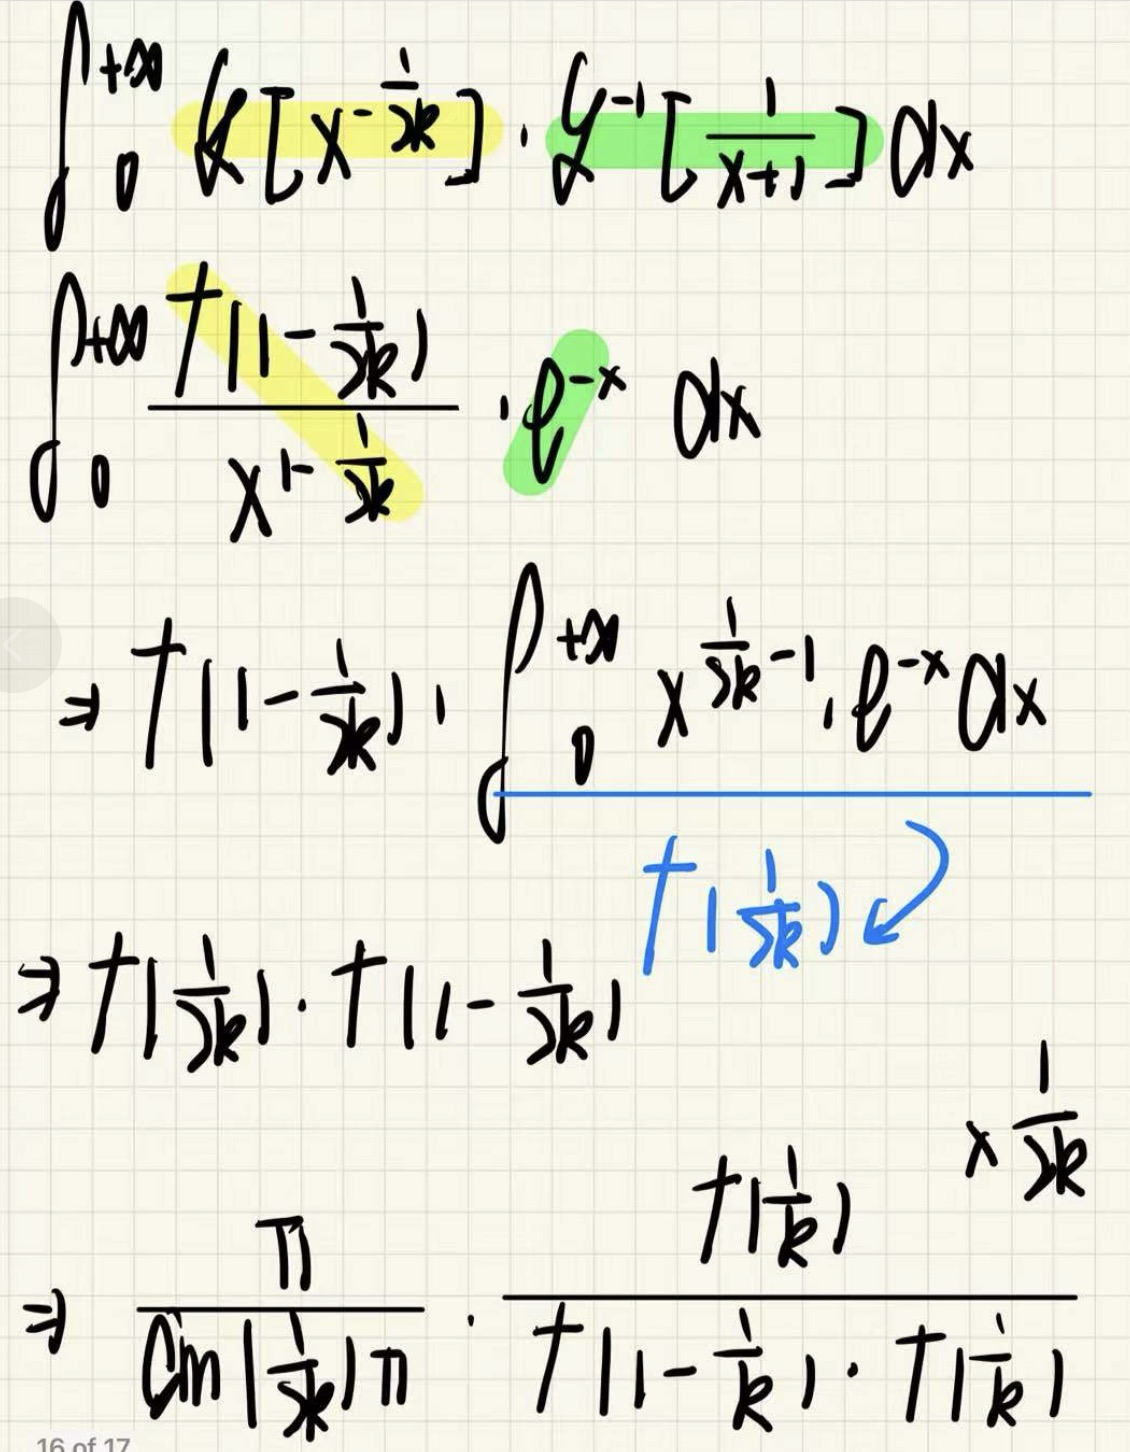 ∫₀^{+∞} ℒ[x^{-1/2k}] · ℒ^{-1}[1/(x+1)] dx
∫₀^{+∞} Γ(1-1/2k)/x^{1-1/2k} · e^{-x} dx
⇒ Γ(1-1/2k) · ∫₀^{+∞} x^{1/2k-1} · e^{-x} dx
Γ(1/2k)
⇒ Γ(1/2k) · Γ(1-1/2k)
× 1/2k
⇒ π/sin(1/2k)π · Γ(1/k)/(Γ(1-1/k) · Γ(1/k))
16 of 17